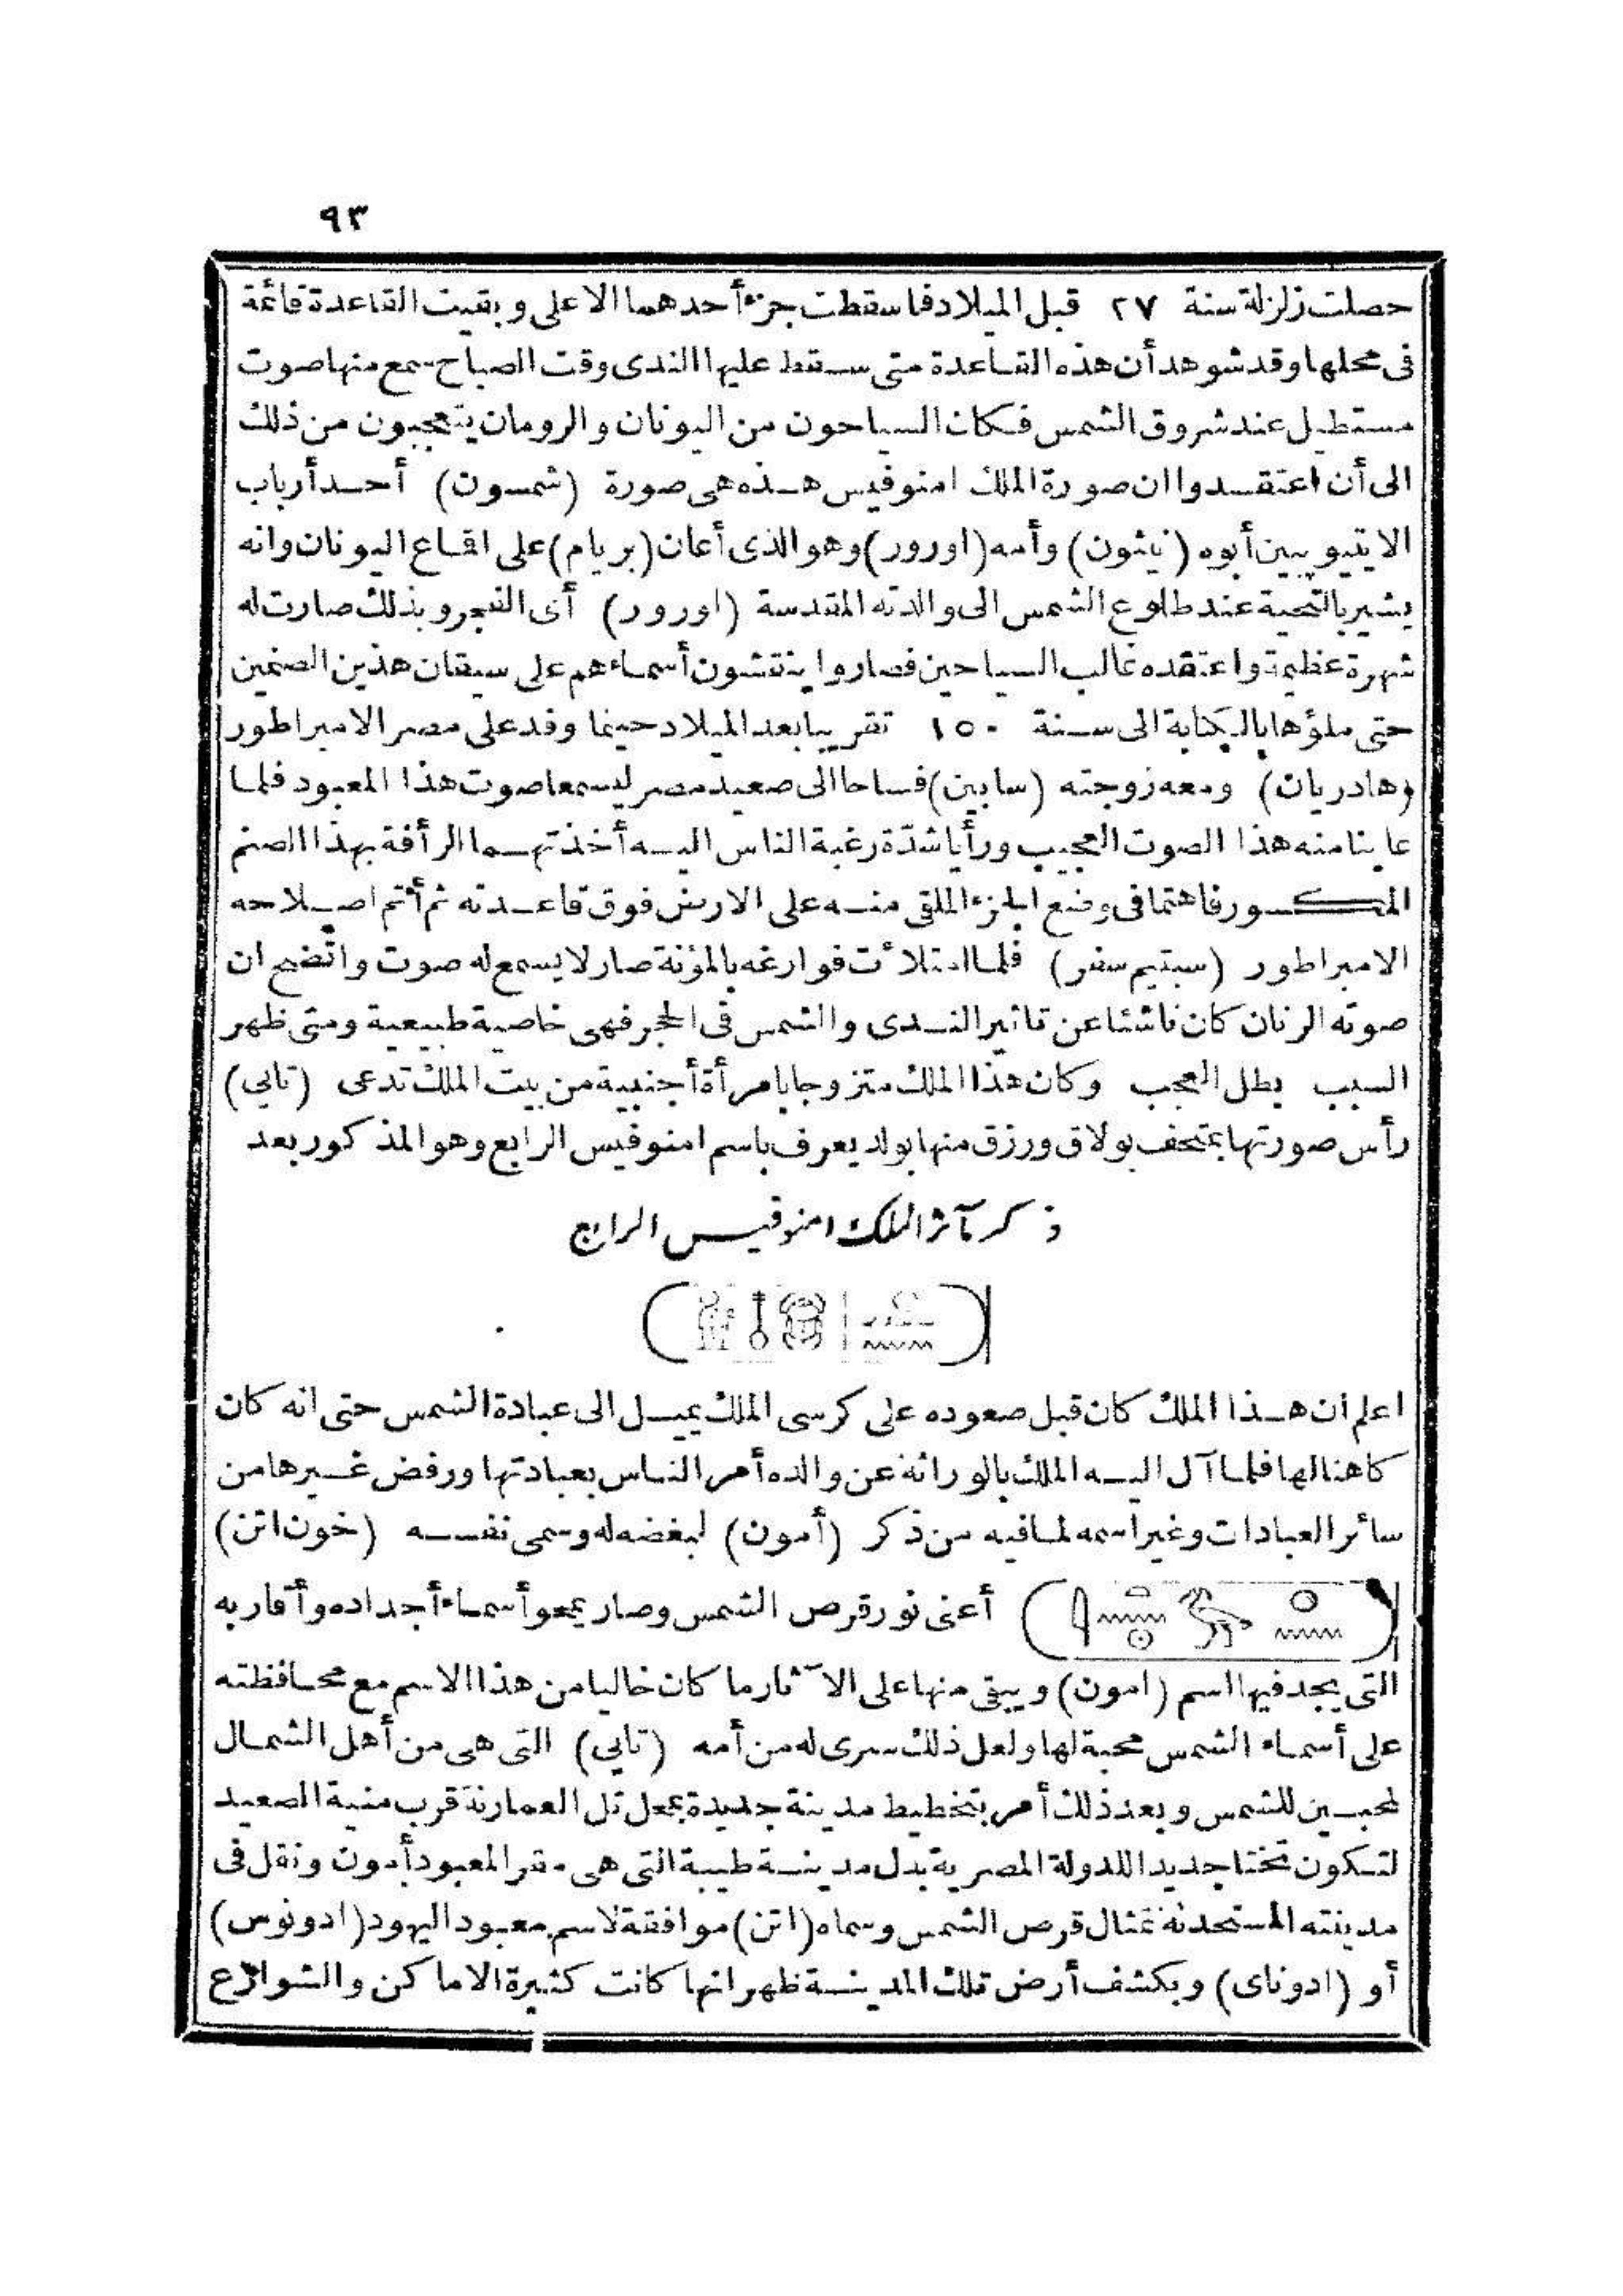 ٩٣
حصلت زلزلة سنة ٢٧ قبل الميلاد فاسقطت جزء أحدهما الاعلى وبقيت القاعدة قائمة
فى محلها وقد شوهد أن هذه القاعدة متى سقط عليها الندى وقت الصباح سمع منها صوت
مستطيل عند شروق الشمس فكان السياحون من اليونان والرومان يتعجبون من ذلك
الى أن اعتقدوا ان صورة الملك امنوفيس هذه هى صورة (شمسون) أحد أرباب
الايتيوبيين أبوه (نيثون) وأمه (اورور) وهو الذى أعان (بريام) على اقماع اليونان وانه
يشير بالتحية عند طلوع الشمس الى والدته المقدسة (اورور) أى الفجر وبذلك صارت له
شهرة عظيمة واعتقده غالب السياحين فصاروا ينقشون أسماءهم على سيقان هذين الصنمين
حتى ملؤها بالكتابة الى سنة ١٥٠ تقريبا بعد الميلاد حينما وفد على مصر الامبراطور
(هادريان) ومعه زوجته (سابين) فساحا الى صعيد مصر ليسمعا صوت هذا المعبود فلما
عاينا منه هذا الصوت العجيب ورأيا شدّة رغبة الناس اليه أخذتهما الرأفة بهذا الصنم
المكسور فاهتما فى وضع الجزء الملقى منه على الارض فوق قاعدته ثم أتم اصلاحه
الامبراطور (سبتيم سفر) فلما امتلأت فوارغه بالمؤنة صار لا يسمع له صوت واتضح ان
صوته الرنان كان ناشئا عن تاثير الندى والشمس فى الحجر فهى خاصية طبيعية ومتى ظهر
السبب بطل العجب وكان هذا الملك متزوجا بامرأة أجنبية من بيت الملك تدعى (تابي)
رأس صورتها بمتحف بولاق ورزق منها بولد يعرف باسم امنوفيس الرابع وهو المذكور بعد
ذكر مآثر الملك امنوفيس الرابع
اعلم ان هذا الملك كان قبل صعوده على كرسى الملك يميل الى عبادة الشمس حتى انه كان
كاهنا لها فلما آل اليه الملك بالوراثة عن والده أمر الناس بعبادتها ورفض غيرها من
سائر العبادات وغير اسمه لما فيه من ذكر (أمون) لبغضه له وسمى نفسه (خون اتن)
أعنى نور قرص الشمس وصار يمحو أسماء أجداده وأقاربه
التى يجد فيها اسم (امون) ويبقى منها على الآثار ما كان خاليا من هذا الاسم مع محافظته
على أسماء الشمس محبة لها ولعل ذلك سرى له من أمه (تابي) التى هى من أهل الشمال
المحبين للشمس وبعد ذلك أمر بتخطيط مدينة جديدة بمحل تل العمارنة قرب منية الصعيد
لتكون تختا جديدا للدولة المصرية بدل مدينة طيبة التى هى مقر المعبود أمون ونقل فى
مدينته المستحدثة تمثال قرص الشمس وسماه (اتن) موافقة لاسم معبود اليهود (ادونوس)
أو (ادوناى) وبكشف أرض تلك المدينة ظهر انها كانت كثيرة الاماكن والشوارع